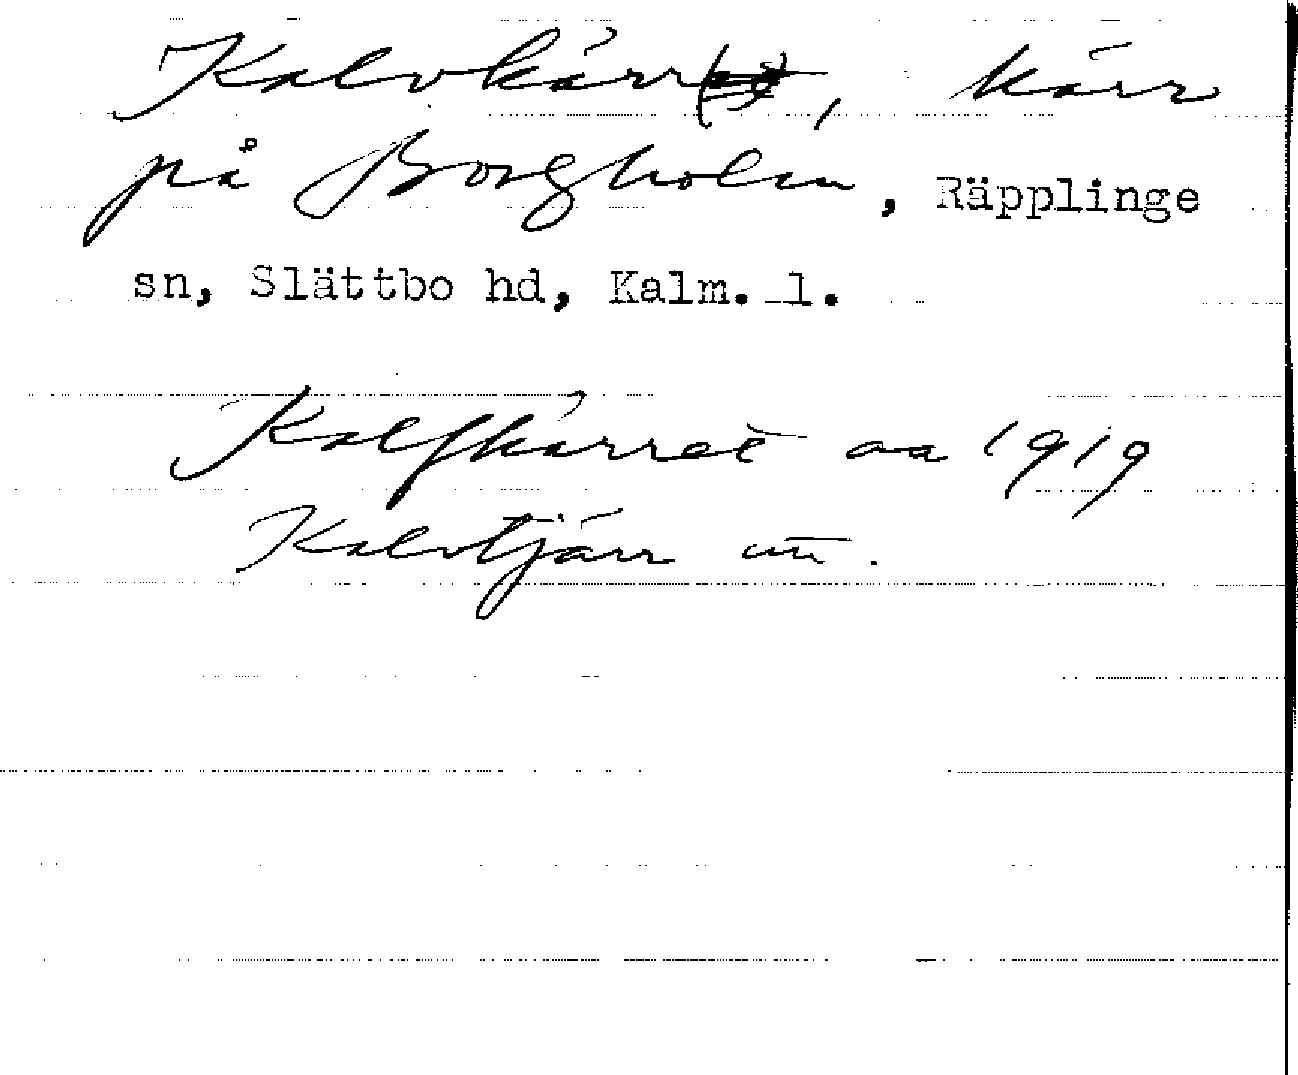 Kalvkärr, kärr
på Borgholm, Räpplinge
sn, Slättbo hd, Kalm. l.
Kalfkärret aa 1919
Kalvtjärr un.